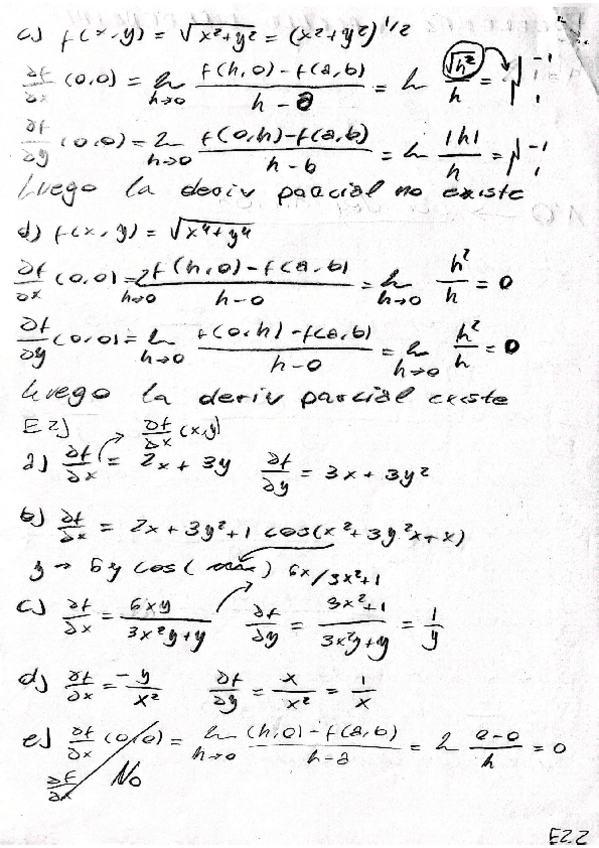 c) f(x,y) = √x²+y² = (x²+y²)^1/2
∂f/∂x (0,0) = lim h→0 f(h,0)-f(a,b) / h-a = lim √h² / h = -1 / 1
∂f/∂y (0,0) = lim h→0 f(0,h)-f(a,b) / h-b = lim |h| / h = -1 / 1
Luego la deriv parcial no existe
d) f(x,y) = √x⁴+y⁴
∂f/∂x (0,0) = lim h→0 f(h,0)-f(a,b) / h-0 = lim h→0 h²/h = 0
∂f/∂y (0,0) = lim h→0 f(0,h)-f(a,b) / h-0 = lim h→0 h²/h = 0
Luego la deriv parcial existe
E2) ∂f/∂x (x,y)
a) ∂f/∂x = 2x + 3y ∂f/∂y = 3x + 3y²
b) ∂f/∂x = 2x + 3y² + 1 cos(x²+3y²x+x)
y → 6y cos( ) 6x/3x²+1
c) ∂f/∂x = 6xy / 3x²y+y ∂f/∂y = 3x²+1 / 3x²y+y = 1/y
d) ∂f/∂x = -y/x² ∂f/∂y = x/x² = 1/x
e) ∂f/∂x (0,0) = lim h→0 (h,0)-f(a,b) / h-a = lim 0-0 / h = 0
∂f/∂x No
E2.2